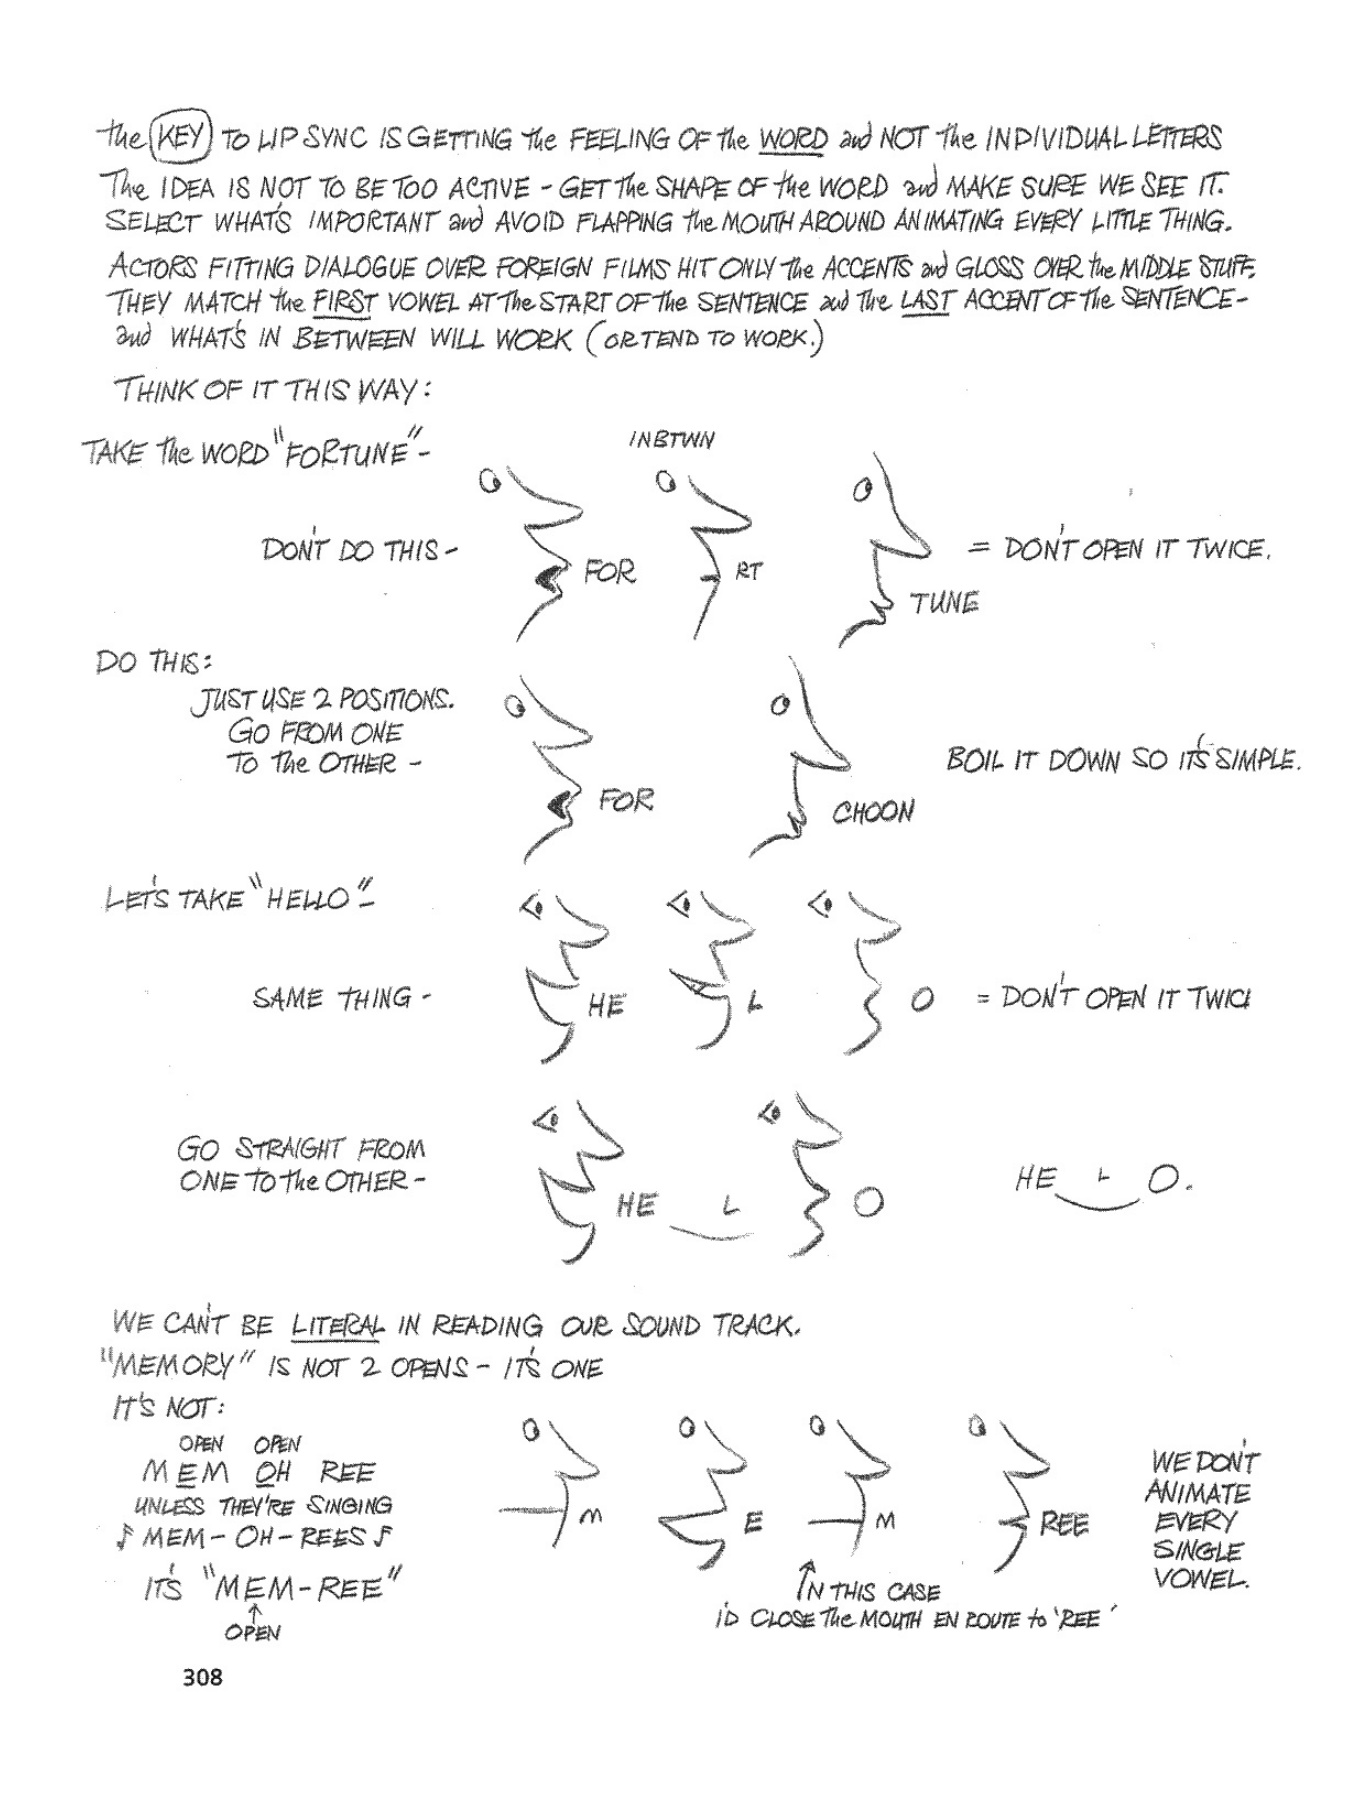 the KEY TO LIP SYNC IS GETTING the FEELING OF the WORD and NOT the INDIVIDUAL LETTERS
The IDEA IS NOT TO BE TOO ACTIVE - GET the SHAPE OF the WORD and MAKE SURE WE SEE IT.
SELECT WHAT'S IMPORTANT and AVOID FLAPPING the MOUTH AROUND ANIMATING EVERY LITTLE THING.
ACTORS FITTING DIALOGUE OVER FOREIGN FILMS HIT ONLY the ACCENTS and GLOSS OVER the MIDDLE STUFF.
THEY MATCH the FIRST VOWEL AT the START OF the SENTENCE and the LAST ACCENT OF the SENTENCE-
and WHAT'S IN BETWEEN WILL WORK (OR TEND TO WORK.)
THINK OF IT THIS WAY:
TAKE the WORD "FORTUNE"-
INBTWN
DON'T DO THIS -
FOR
RT
TUNE
= DON'T OPEN IT TWICE.
DO THIS:
JUST USE 2 POSITIONS.
GO FROM ONE
TO the OTHER -
FOR
CHOON
BOIL IT DOWN SO IT'S SIMPLE.
LET'S TAKE "HELLO"-
SAME THING -
HE
L
O
= DON'T OPEN IT TWICE
GO STRAIGHT FROM
ONE TO the OTHER -
HE L O
HE L O.
WE CAN'T BE LITERAL IN READING OUR SOUND TRACK.
"MEMORY" IS NOT 2 OPENS - IT'S ONE
IT'S NOT:
OPEN OPEN
MEM OH REE
UNLESS THEY'RE SINGING
♪ MEM - OH - REES ♪
IT'S "MEM-REE"
↑
OPEN
M
E
M
REE
↑
IN THIS CASE
I'D CLOSE the MOUTH EN ROUTE to 'REE'
WE DON'T
ANIMATE
EVERY
SINGLE
VOWEL.
308